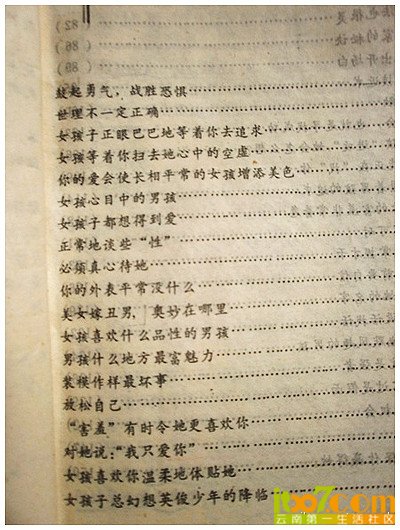 鼓起勇气，战胜恐惧……
世理不一定正确……
女孩子正眼巴巴地等着你去追求……
女孩等着你扫去她心中的空虚……
你的爱会使长相平常的女孩增添美色……
女孩心目中的男孩……
女孩子都想得到爱……
正常地谈些“性”……
必须真心待她……
你的外表平常没什么……
美女嫁丑男，奥妙在哪里……
女孩喜欢什么品性的男孩……
男孩什么地方最富魅力……
装模作样最坏事……
放松自己……
“害羞”有时令她更喜欢你……
对她说：“我只爱你”……
女孩喜欢你温柔地体贴她……
女孩子总幻想英俊少年的降临……
云南第一生活社区